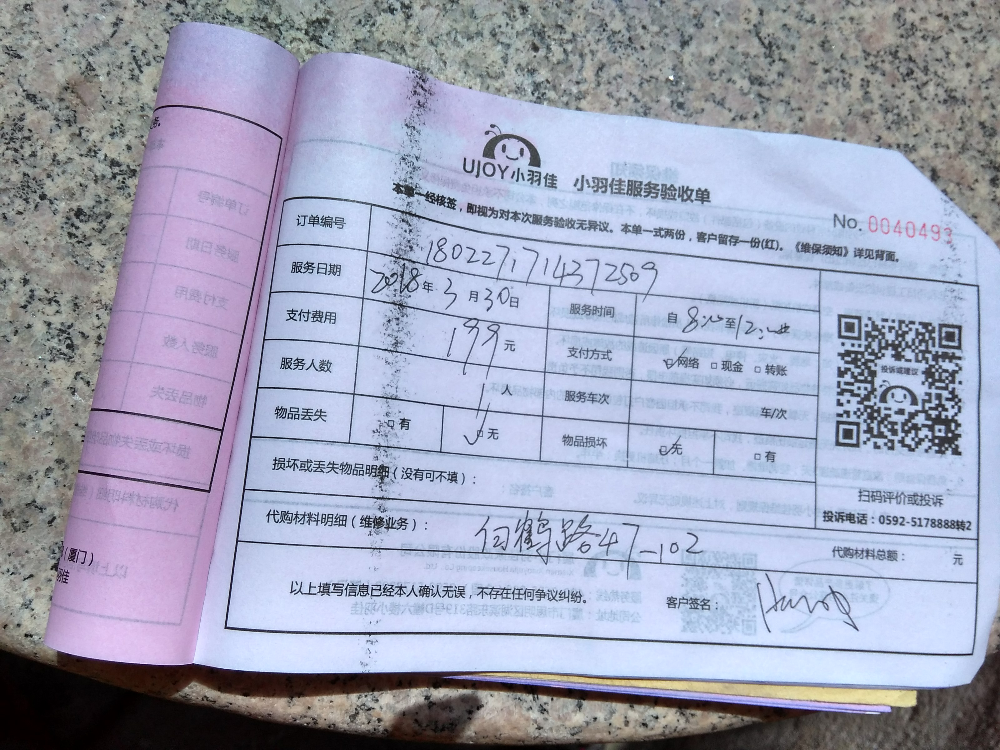 UJOY小羽佳 小羽佳服务验收单
No. 0040493
本单一经核签，即视为对本次服务验收无异议。本单一式两份，客户留存一份(红)。《维保须知》详见背面。
订单编号 1802271714372509
服务日期 2018年3月30日 服务时间 自8:00至12:00
支付费用 199元 支付方式 网络 现金 转账
服务人数 1人 服务车次 车/次
物品丢失 有 无 物品损坏 无 有
损坏或丢失物品明细（没有可不填）：
投诉或建议
扫码评价或投诉
投诉电话：0592-5178888转2
代购材料明细（维修业务）： 白鹤路47-102 代购材料总额： 元
以上填写信息已经本人确认无误，不存在任何争议纠纷。 客户签名：
（厦门）
羽佳